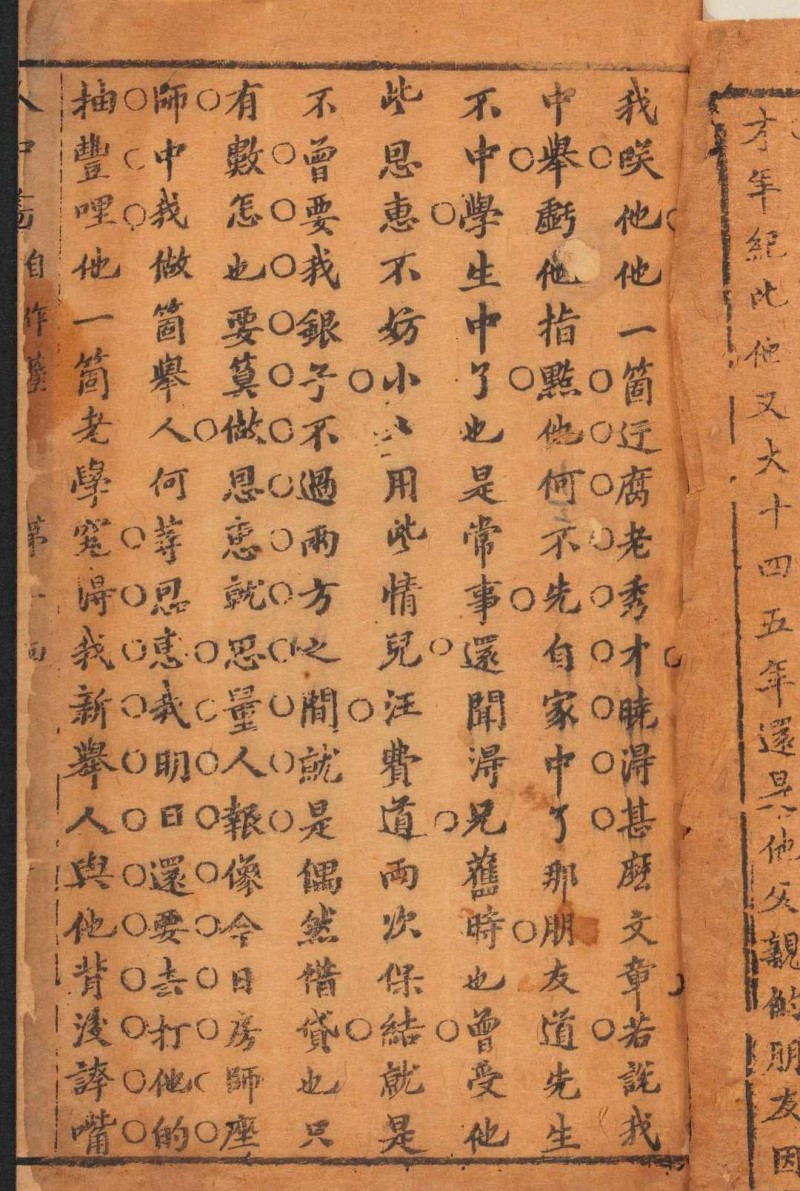 才年紀比他又大十四五年還是他父親的朋友因
我咲他他一箇迂腐老秀才曉淂甚庅文章若說我
中舉虧他指點他何不先自家中了那朋友道先生
不中學生中了也是常事還聞淂兄舊時也曾受他
些恩惠不妨小用些情兒汪費道兩次保結就是
不曾要我銀子不過兩方之間就是偶然借貸也只
有數怎也要莫做恩惠就思量人報像今日房師座
師中我做箇舉人何等恩惠我明日還要去打他的
抽豐哩他一箇老學究淂我新舉人與他背後譁嘴
人中畫 自作孽 第一回